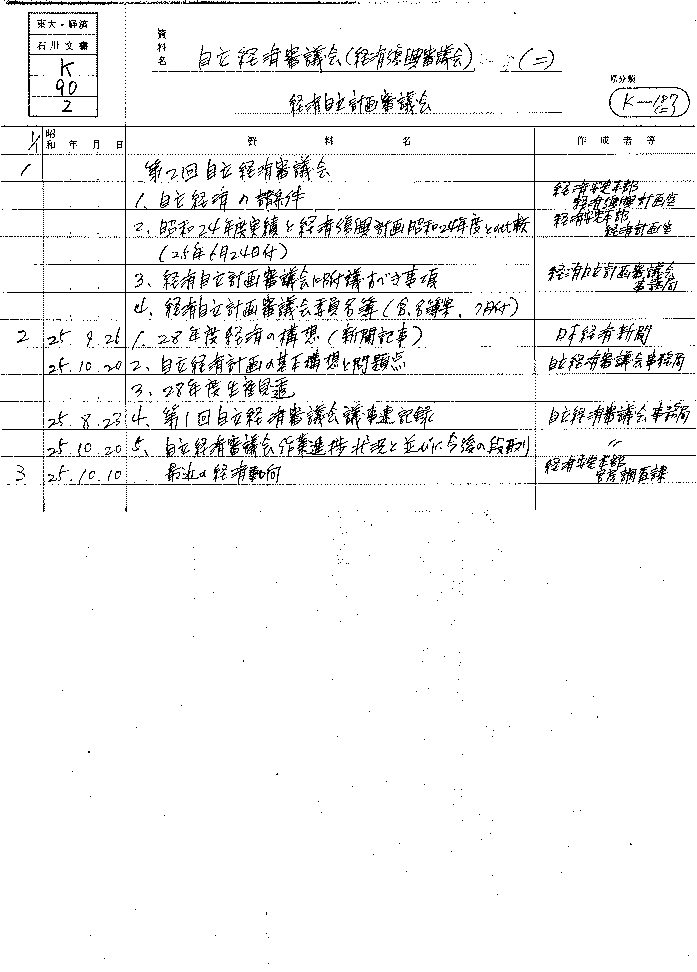 東大・経済
石川文書
K
90
2
資料名
自立経済審議会(経済復興審議会) (二)
経済自立計画審議会
原分類
K-187
1/1 昭和 年 月 日 資 料 名 作 成 者 等
1 第2回自立経済審議会
1. 自立経済の諸条件 経済安定本部 経済復興計画室
2. 昭和24年度実績と経済復興計画昭和24年度との比較 経済安定本部 経済計画室
(25年6月24日付)
3、経済自立計画審議会に附議すべき事項 経済自立計画審議会 事務局
4、経済自立計画審議会委員名簿(含、名簿案、7月付)
2 25 9 26 1. 28年度経済の構想(新聞記事) 日本経済新聞
25.10.20 2、自立経済計画の基本構想と問題点 自立経済審議会事務局
3、28年度生産見透
25.8.23 4、第1回自立経済審議会議事速記録 自立経済審議会事務局
25.10.20 5、自立経済審議会作業進捗状況と並びに今後の段取り 〃
3 25.10.10 最近の経済動向 経済安定本部 官房調査課